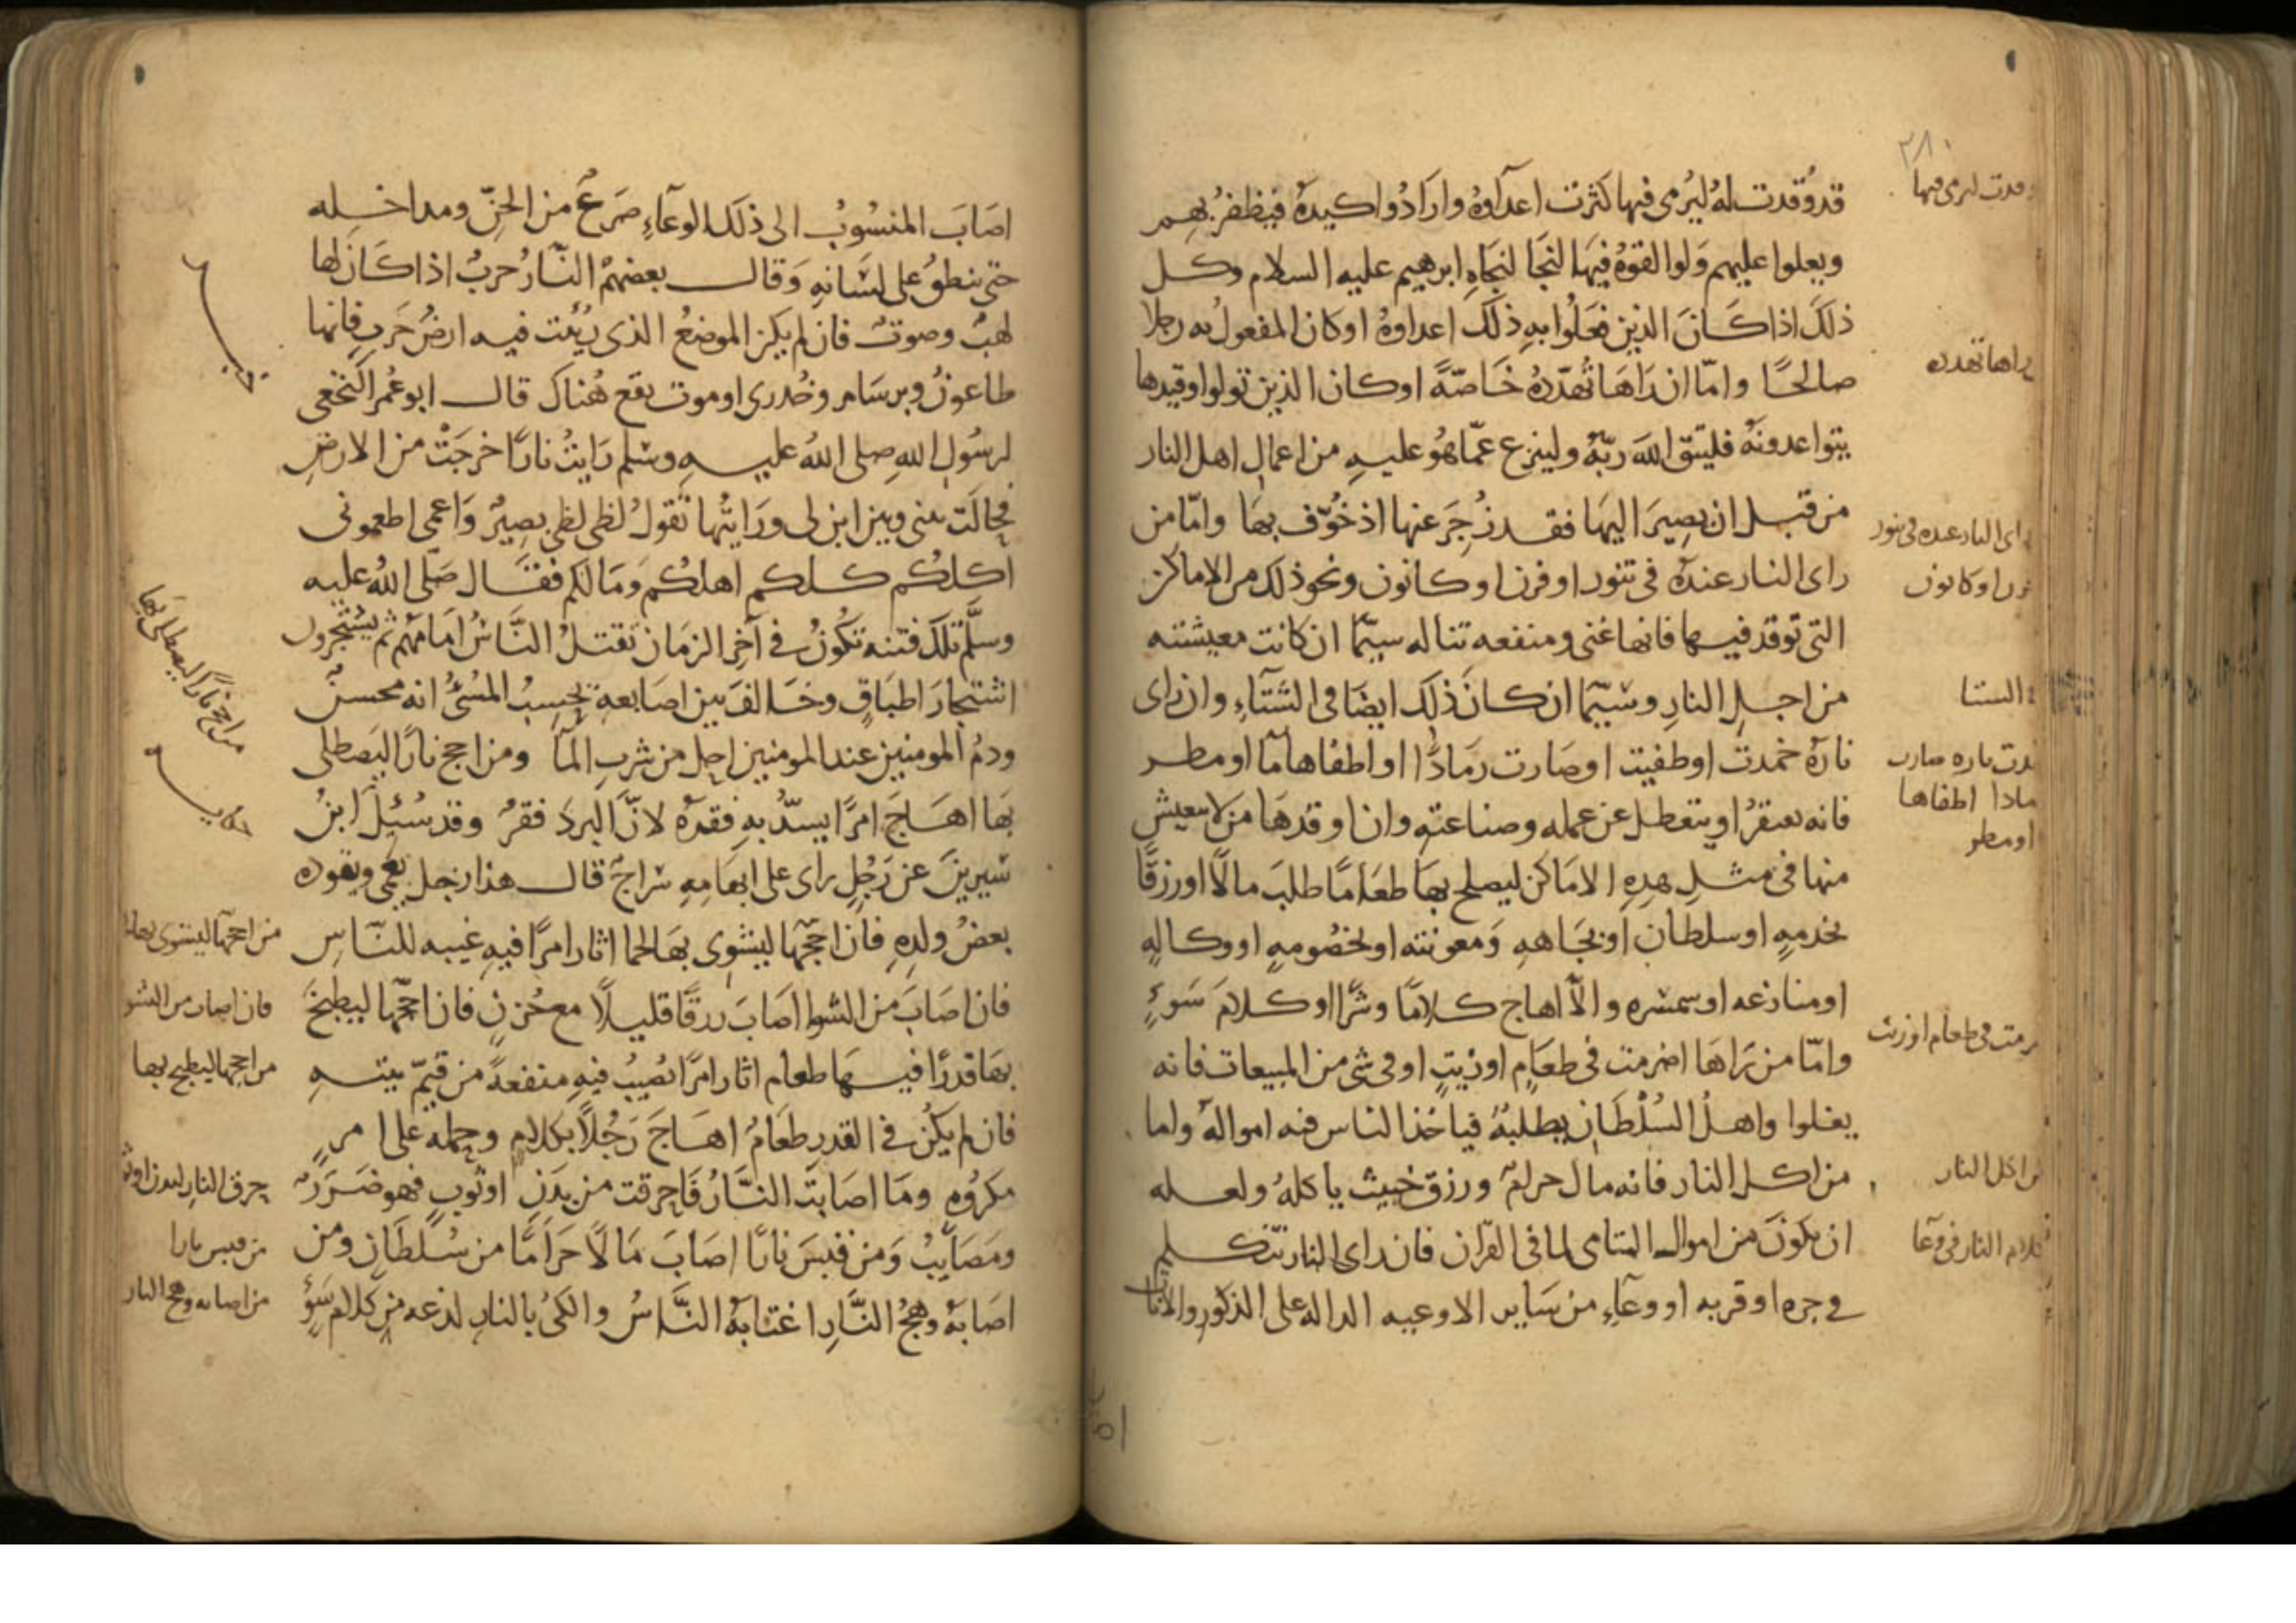 ٣٨٠
وقدت ليرمى فيها
قد وُقدت له ليُرمى فيها كثرت اعدآوهُ وارَادُوا كيدهُ فيظفرُ بهم
ويعلوا عليهم وَلو القوهُ فيهَا لنجَا لنجَاهِ ابرهيم عليه السلام وكل
ذلكَ اذا كَانَ الذين فعَلُوا بهِ ذلكَ اعداوهُ او كان المفعول به رجلا
صالحًا وامّا ان رَاهَا تُهدّدهُ خَاصّةً او كان الذين تولوا وقيدها
يتواعدونهُ فليتّق اللهَ ربّهُ ولينزع عمّا هُو عليهِ من اعمالِ اهل النار
من قبل ان يصِيرَ اليهَا فقد زُجرَ عنها اذ خُوّف بهَا وامّا من
راى النار عندهُ فى تنور او فرن او كانون ونحو ذلك من الاماكن
التى توقد فيها فانها غنى ومنفعه تناله سيّما ان كانت معيشته
من اجلِ النارِ وسيّما ان كانَ ذلِكَ ايضَا فى الشتآءِ وان راى
نارهُ خمدت او طفيت او صَارت رمَادًا او اطفاها مآ او مطر
فانه يفتقرُ او يتعطل عن عمله وصناعتهِ وان اوقدهَا من لا يتعيش
منها فى مثلِ هذهِ الامَاكن ليصلح بهَا طعَامًا طلبَ مالًا او رزقًا
بخدمةٍ او سلطان او بجَاههِ وَمعونته او بخصُومهٍ او وكالهٍ
او منازعه او سمسره والّا اهاج كلامًا وشرًّا او كلامَ سَوءٍ
وامّا من رَاهَا اضرمت فى طعَامٍ او زيتٍ او فى شى من المبيعات فانه
يغلوا واهلُ السُلطَان يطلبُهُ فياخذ الناس فيه اموالهُ واما
من اكل النار فانه مال حرامٌ ورزق خبيث ياكلهُ ولعله
ان يكونَ من اموال اليتامى لما فى القرآن فان راى النار تتكلم
فى جره او قربه او وعآءٍ من سَاير الاوعيه الداله على الذكور والاناث
يراها تهدده
راى النار عنده فى تنور
فرن او كانون
فى الشتا
خمدت ناره صارت
رمادا اطفاها
او مطر
ضرمت فى طعام او زيت
من اكل النار
كلام النار فى وعآ
اصَابَ المنسُوبُ الى ذلكَ الوعآءِ صَرعٌ من الجنّ ومداخله
حتى ينطقُ على لسَانهِ وَقال بعضهمُ النّارُ حربُ اذا كَانَ لها
لهبٌ وصوتٌ فان لم يكن الموضعُ الذى رُئيت فيه ارضُ حَربٍ فانها
طاعونٌ وبرسَام وجُدرى او موت يقع هُناكَ قال ابو عُمر النخعى
لرسُولِ اللهِ صلى اللهُ عليهِ وسلم رَايتُ نارًا خرجَتْ من الارضِ
فحَالَت بينى وبين ابن لى ورَايتُها تقولُ لظى لظى بصِيرٌ وَاعمى اطعمونى
اكلُكُم كلكم اهلكُم وَمَالكم فقَال صَلّى اللهُ عليه
وسلَّم تلكَ فتنه تكُونُ فى آخِر الزمَان تقتلُ النَّاسُ امَامهُم ثم يشتجرُون
اشتجَارَ اطبَاقٍ وخَالفَ بين اصَابعهِ يحسِبُ المسُئُ انه محسنٌ
ودمُ المومنين عند المومنين احل من شربِ المآ ومن اجج نارًا ليَصطلى
بهَا اهَاجَ امرًا يسدّ بهِ فقرهُ لانَّ البردَ فقرٌ وقد سُئِلَ ابنُ
سِيرينَ عن رَجُلٍ راى على ابهَامِهِ سَراجٌ قال هذا رجل يعمى ويقوده
بعضُ ولدِهِ فان اججهَا ليشوى بهَا لحما اثار امرًا فيهِ غيبه للنّاسِ
فان اصَابَ من الشوا اصَابَ رزقًا قليلًا مع حُزنٍ فان اججهَا ليطبخَ
بهَا قدرًا فيهَا طعام اثار امرًا يُصيبُ فيهِ منفعةً من قيّم بيتهِ
فان لم يكُن فى القدر طعَامٌ اهَاجَ رَجُلًا بكلامٍ وحملهِ على امرٍ
مكرُوهٍ ومَا اصَابت النَّارُ فَاحرقت من بدَنٍ او ثوبٍ فهو ضَررٌ
ومَصَايبُ وَمن قبسَ نارًا اصَابَ مَالًا حَرَامًا من سُلطَانٍ ومن
اصَابهُ وهجُ النَّارِ اغتابهُ النَّاسُ والكىُ بالنارِ لذعه من كلام سَوْءٍ
من اجج نارًا ليصطلى بها
من اججها ليشوى بها لحما
فان اصاب من الشوا
من اججها ليطبخ بها
حرق النار لبدن او ثوب
من قبس نارا
من اصابه وهج النار